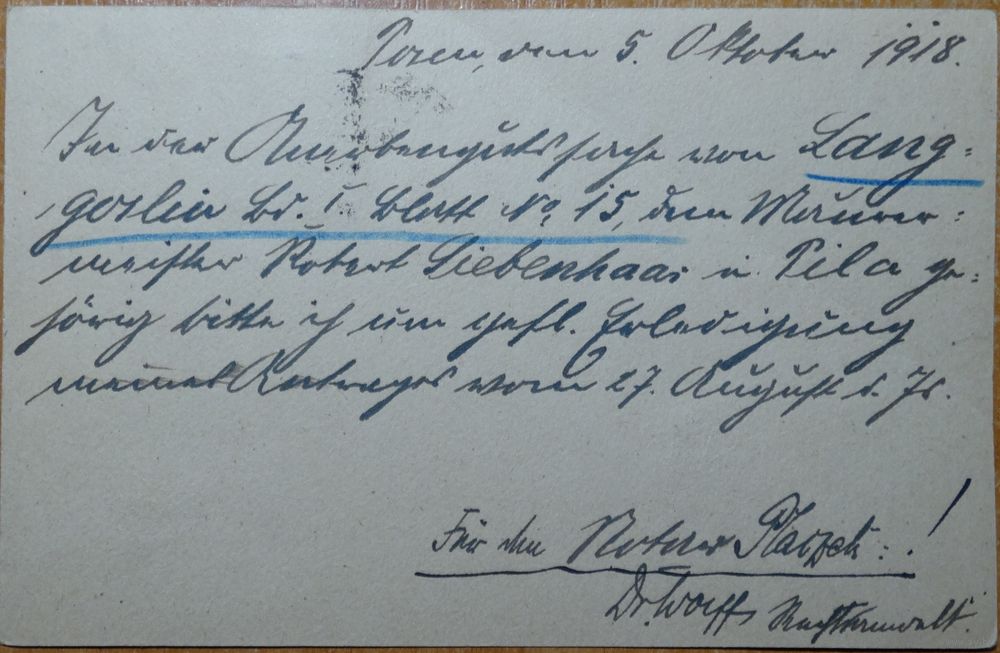 Posen, den 5. Oktober 1918.
In der sache von Lang-
goslin Bd. I Blatt No 15, dem Maurer-
meister Robert Liebenhaas in Pila ge-
hörig bitte ich um gefl. Erledigung
meines Antrages vom 27. August d. Js.
Für den Notar !
Dr. Wolff, Rechtsanwalt.